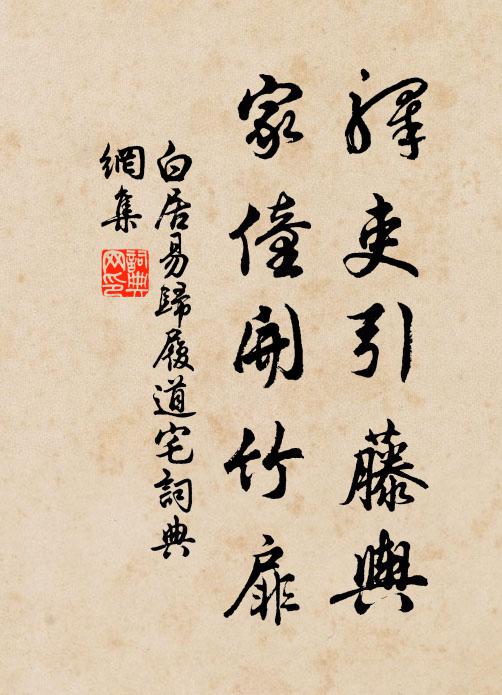 驛吏引藤輿
家僮開竹扉
白居易歸履道宅詞典
網集
詞典網印